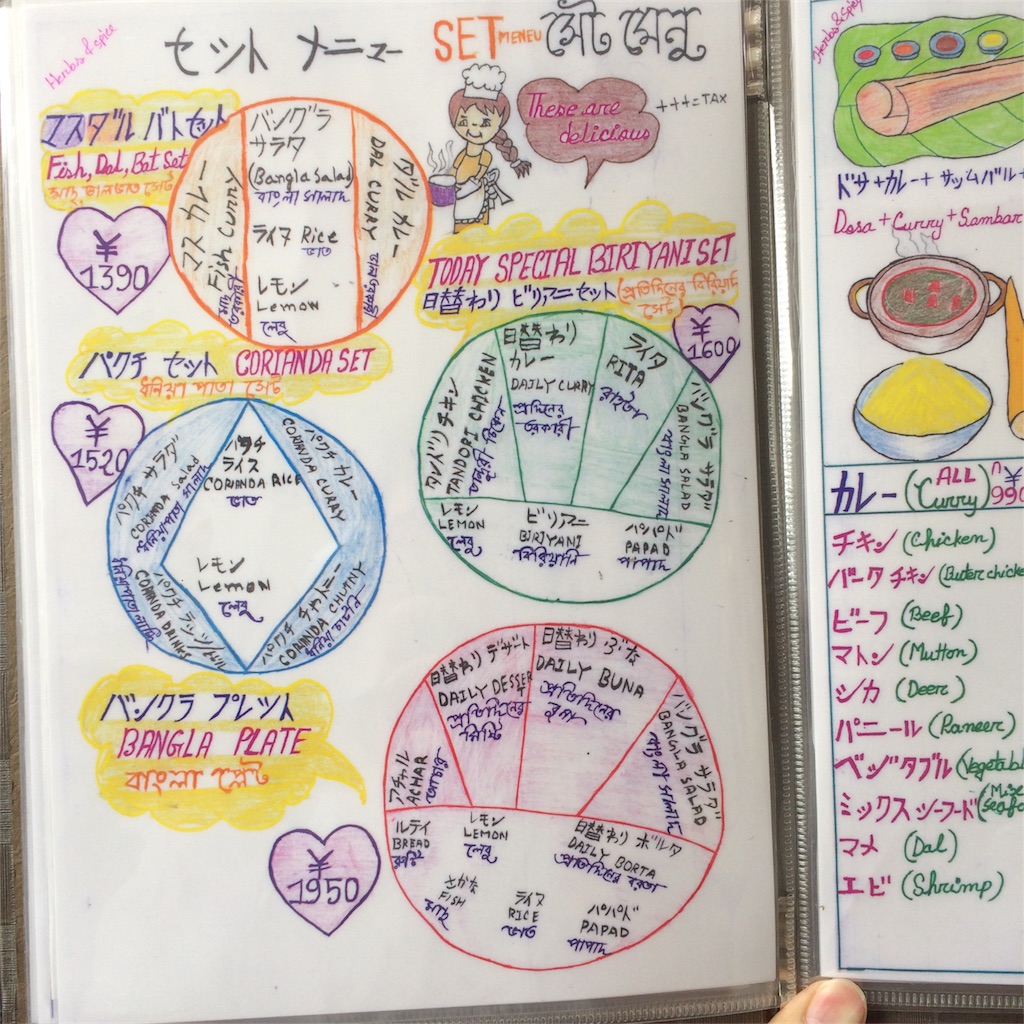 Herbs & spice
セット メニュー SET MENEU সেট মেনু
These are
delicious
+++=TAX
マスダル バトセット
Fish, Dal, Bat Set
মাছ ডালভাত সেট
¥
1390
マス カレー
Fish Curry
মাছ
তরকারী
バングラ
サラダ
(Bangla Salad)
বাংলা সালাদ
ライス Rice
ভাত
レモン
Lemon
লেবু
ダル カレー
DAL CURRY
TODAY SPECIAL BIRIYANI SET
日替わり ビリアニセット প্রতিদিনের বিরিয়ানি
সেট
¥
1600
タンドリ チキン
TANDORI CHICKEN
日替わり
カレー
DAILY CURRY
তরকারী
ライタ
RITA
রাইতা
バングラ サラダ
BANGLA SALAD
বাংলা সালাদ
レモン
LEMON
লেবু
ビリアニ
BIRIYANI
বিরিয়ানি
パパド
PAPAD
পাপাদ
パクチ セット CORIANDA SET
ধনিয়া পাতা সেট
¥
1520
パクチ サラダ
CORIANDA Salad
パクチ
ライス
CORIANDA RICE
ভাত
パクチ カレー
CORIANDA CURRY
レモン
Lemon
লেবু
パクチ ラッシ
CORIANDA DRINKS
パクチ チャトニー
CORIANDA CHUTNY
バングラ プレット
BANGLA PLATE
বাংলা প্লেট
¥
1950
アチャル
ACHAR
আচার
日替わり デザート
DAILY DESSERT
প্রতিদিনের
মিষ্টি
日替わり ぶな
DAILY BUNA
প্রতিদিনের
バングラ サラダ
BANGLA SALAD
বাংলা সালাদ
BREAD
রুটি
レモン
LEMON
লেবু
日替わり ボルタ
DAILY BORTA
প্রতিদিনের
さかな
FISH
মাছ
ライス
RICE
ভাত
パパド
PAPAD
পাপাদ
Herbs & Spice
ドサ+カレー+サッムバル+
Dosa+Curry+Sambar
カレー (ALL Curry) ¥
990
チキン (Chicken)
バータ チキン (Buter chicke
ビーフ (Beef)
マトン (Mutton)
シカ (Deer)
パニール (Paneer)
ベジタブル (Vegetabl
ミックス シーフード
マメ (Dal)
エビ (Shrimp)